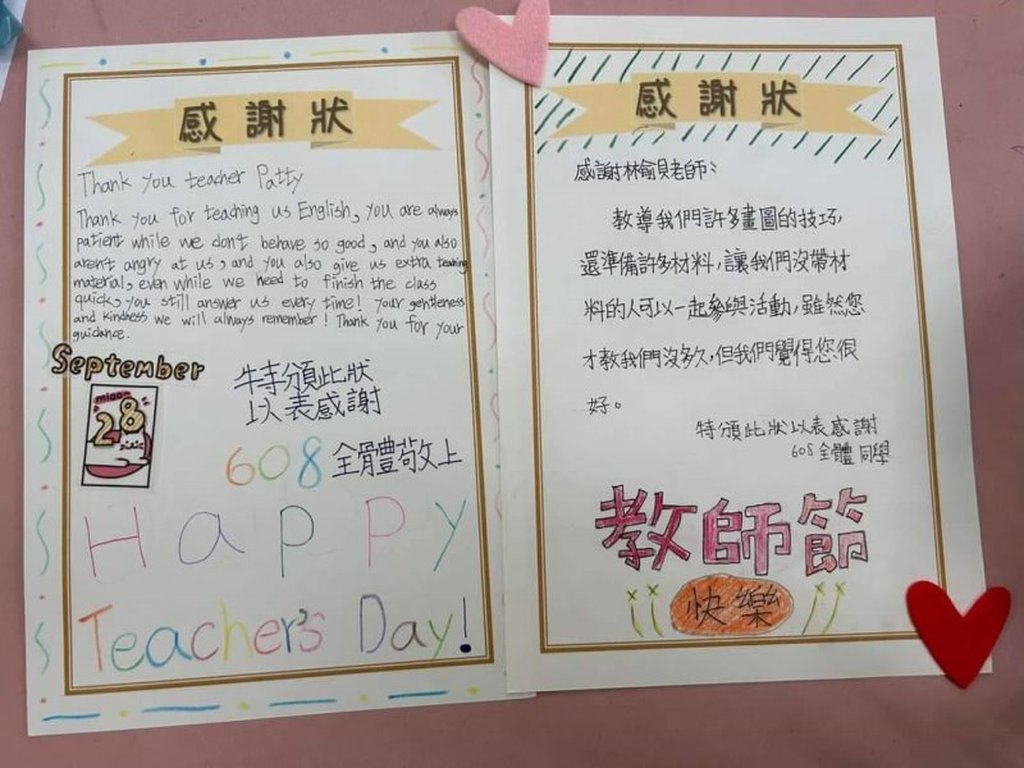 感謝狀
Thank you teacher Patty
Thank you for teaching us English, you are always
patient while we don't behave so good, and you also
aren't angry at us, and you also give us extra teaching
material, even while we need to finish the class
quick, you still answer us every time! Your gentleness
and kindness we will always remember! Thank you for your
guidance.
September
28
特頒此狀
以表感謝
608 全體敬上
Happy
Teacher's Day!
感謝狀
感謝林俞貝老師:
教導我們許多畫圖的技巧,
還準備許多材料,讓我們沒帶材
料的人可以一起參與活動,雖然您
才教我們沒多久,但我們覺得您很
好。
特頒此狀以表感謝
608 全體同學
教師節
快樂